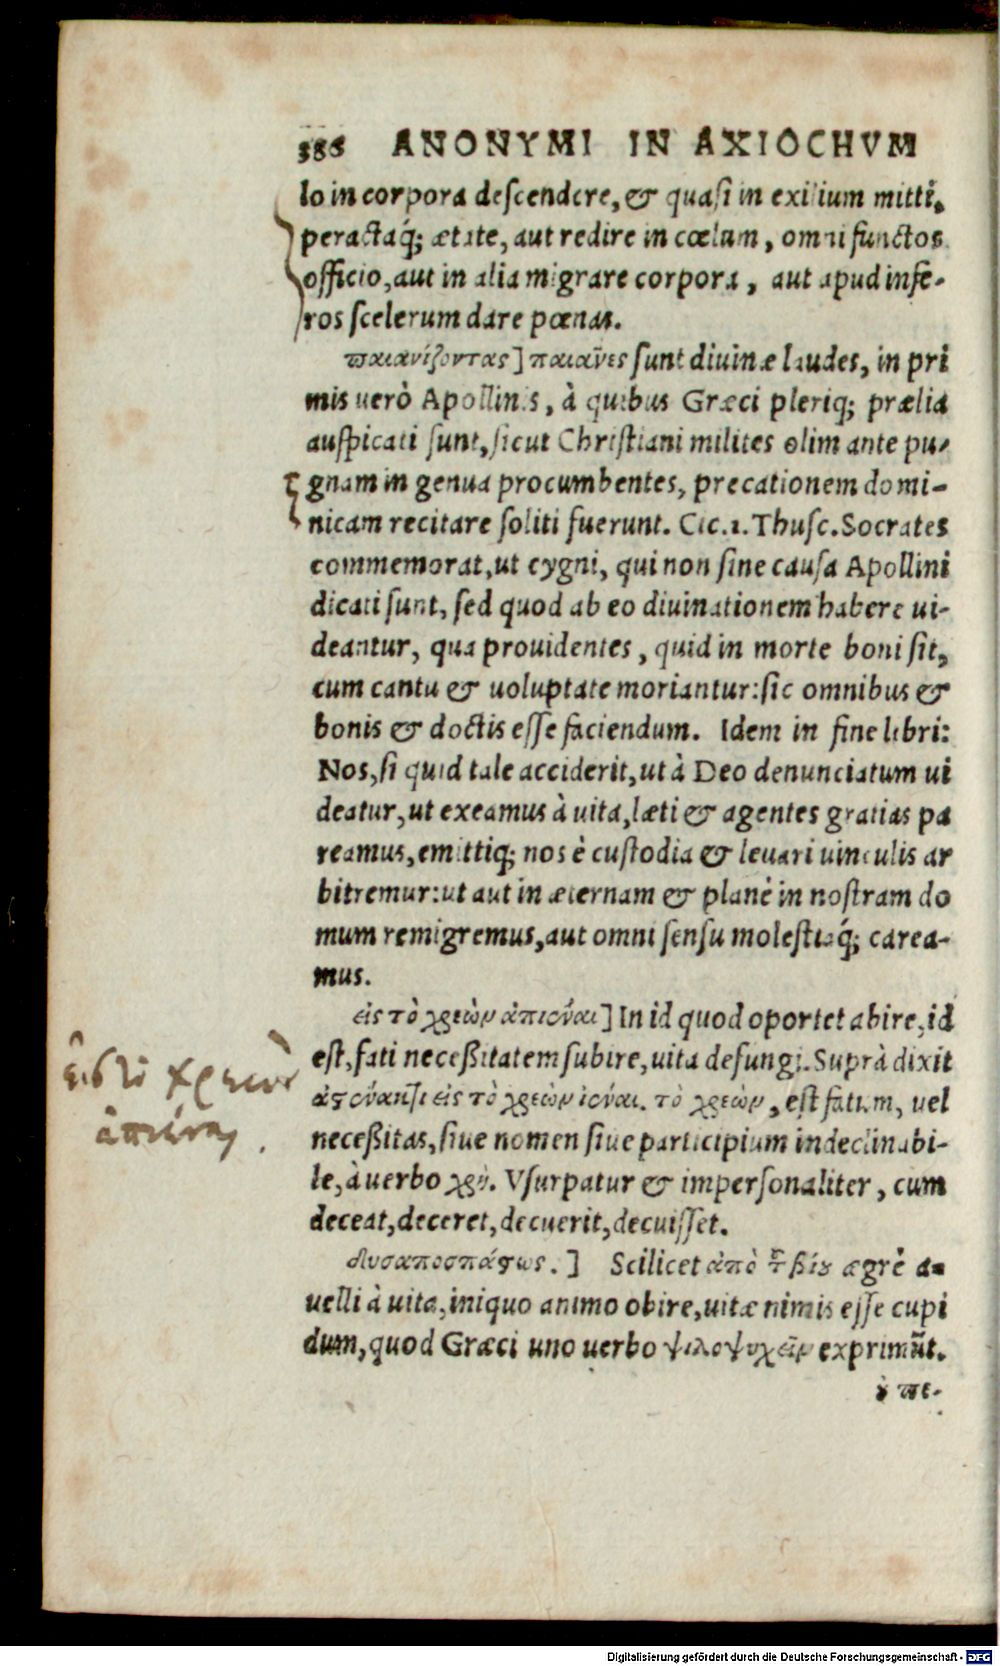 386 ANONYMI IN AXIOCHVM
lo in corpora descendere, & quasi in exilium mitti,
peractaq́; ætate, aut redire in cœlum, omni functos
officio, aut in alia migrare corpora, aut apud infe-
ros scelerum dare pœnas.
παιανίζοντας] παιᾶνες sunt diuinæ laudes, in pri
mis uerò Apollinis, à quibus Græci pleriq; prælia
auspicati sunt, sicut Christiani milites olim ante pu-
gnam in genua procumbentes, precationem domi-
nicam recitare soliti fuerunt. Cic. 1. Thusc. Socrates
commemorat, ut cygni, qui non sine causa Apollini
dicati sunt, sed quod ab eo diuinationem habere ui-
deantur, qua prouidentes, quid in morte boni sit,
cum cantu & uoluptate moriantur: sic omnibus &
bonis & doctis esse faciendum. Idem in fine libri:
Nos, si quid tale acciderit, ut à Deo denunciatum ui
deatur, ut exeamus à uita, læti & agentes gratias pa
reamus, emittiq; nos è custodia & leuari uinculis ar
bitremur: ut aut in æternam & planè in nostram do
mum remigremus, aut omni sensu molestiaq́; carea-
mus.
εἰς τὸ χρεὼν ἀπιέναι] In id quod oportet abire, id
est, fati necessitatem subire, uita defungi. Suprà dixit
εἰς τὸ χρεὼν ἰέναι. τὸ χρεὼν, est fatum, uel
necessitas, siue nomen siue participium indeclinabi-
le, à uerbo χρή. Vsurpatur & impersonaliter, cum
deceat, deceret, decuerit, decuisset.
δυσαποσπάστως.] Scilicet ἀπὸ τοῦ βίου ægrè a-
uelli à uita, iniquo animo obire, uitæ nimis esse cupi
dum, quod Græci uno uerbo φιλοψυχεῖν exprimūt.
ὑπε-
εἰς τὸ χρεὼν
ἀπιέναι.
Digitalisierung gefördert durch die Deutsche Forschungsgemeinschaft - DFG